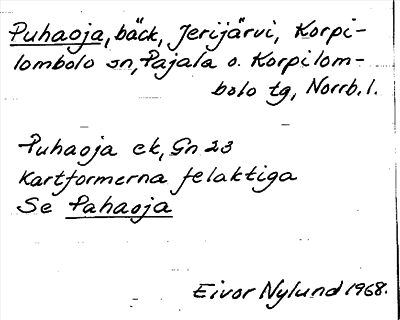 Puhaoja, bäck, Jerijärvi, Korpi-
lombolo sn, Pajala o. Korpilom-
bolo tg, Norrb. l.
Puhaoja ek, Gn 23
Kartformerna felaktiga
Se Pahaoja
Eivor Nylund 1968.